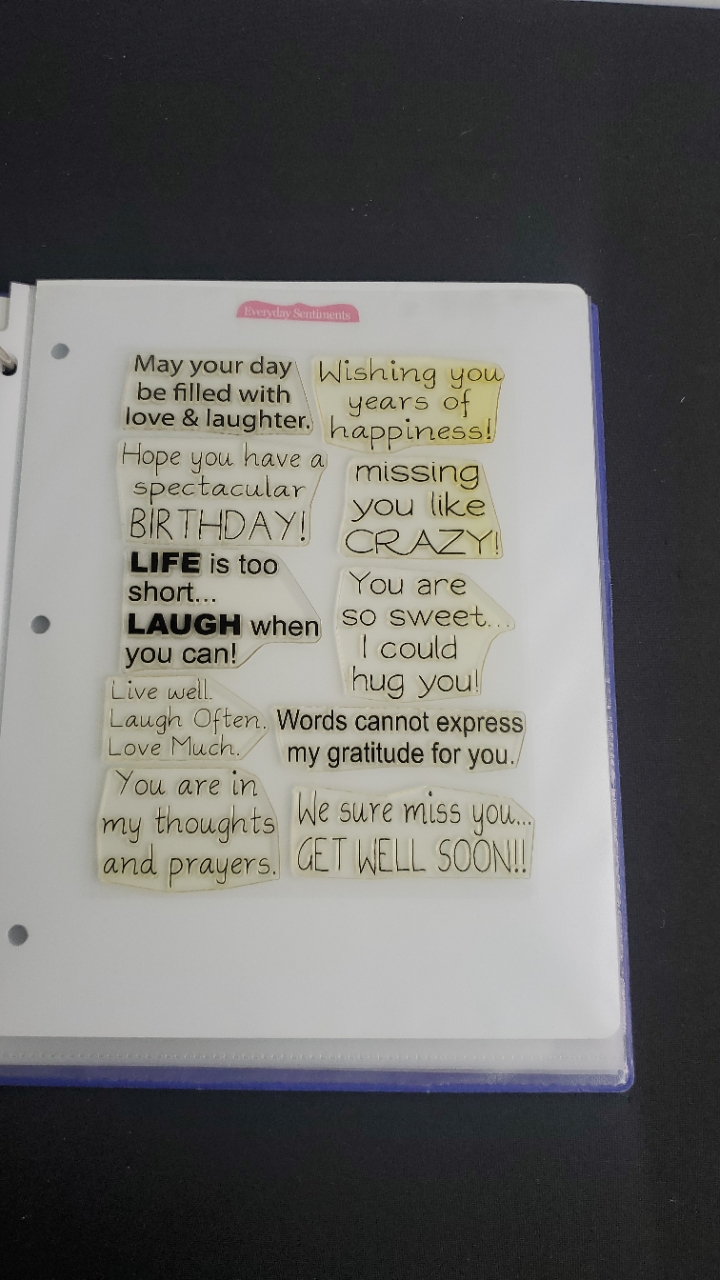 Everyday Sentiments
May your day
be filled with
love & laughter.
Wishing you
years of
happiness!
Hope you have a
spectacular
BIRTHDAY!
missing
you like
CRAZY!
LIFE is too
short...
LAUGH when
you can!
You are
so sweet...
I could
hug you!
Live well.
Laugh Often.
Love Much.
Words cannot express
my gratitude for you.
You are in
my thoughts
and prayers.
We sure miss you...
GET WELL SOON!!